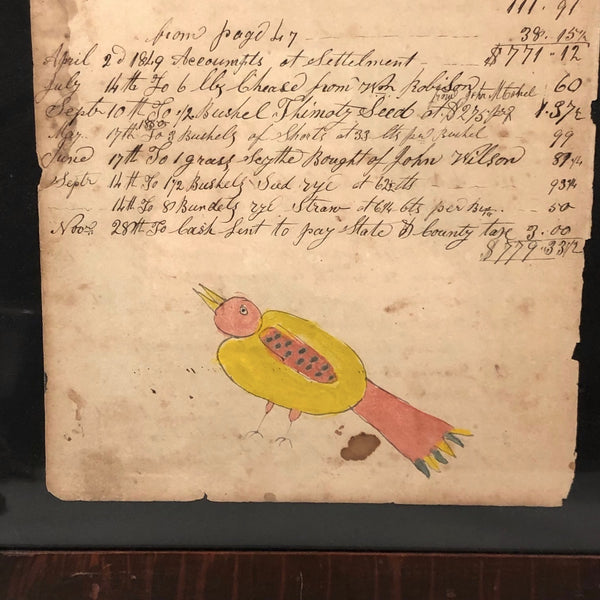 111. 91
from page 47 38. 15½
April 2d 1849 Accoumpts at Settelment $771. 12
July 14th To 6 lbs Chease from Wm Robison 60
from John Mitchel
Septr 10th To ½ Bushel Thimoty Seed at $2.75 1. 37½
May. 17th To 3 Bushels of Shorts at 33 cts per Bushel 99
June 17th To 1 grass Scythe Bought of John Wilson
Septr 14th To 1½ Bushels Seed rye at 62½ cts 93¾
14th To 8 Bundels rye Straw at 6¼ cts per Bun. 50
Novr 28th To Cash Sent to pay State & County tax 3. 00
$779. 33½